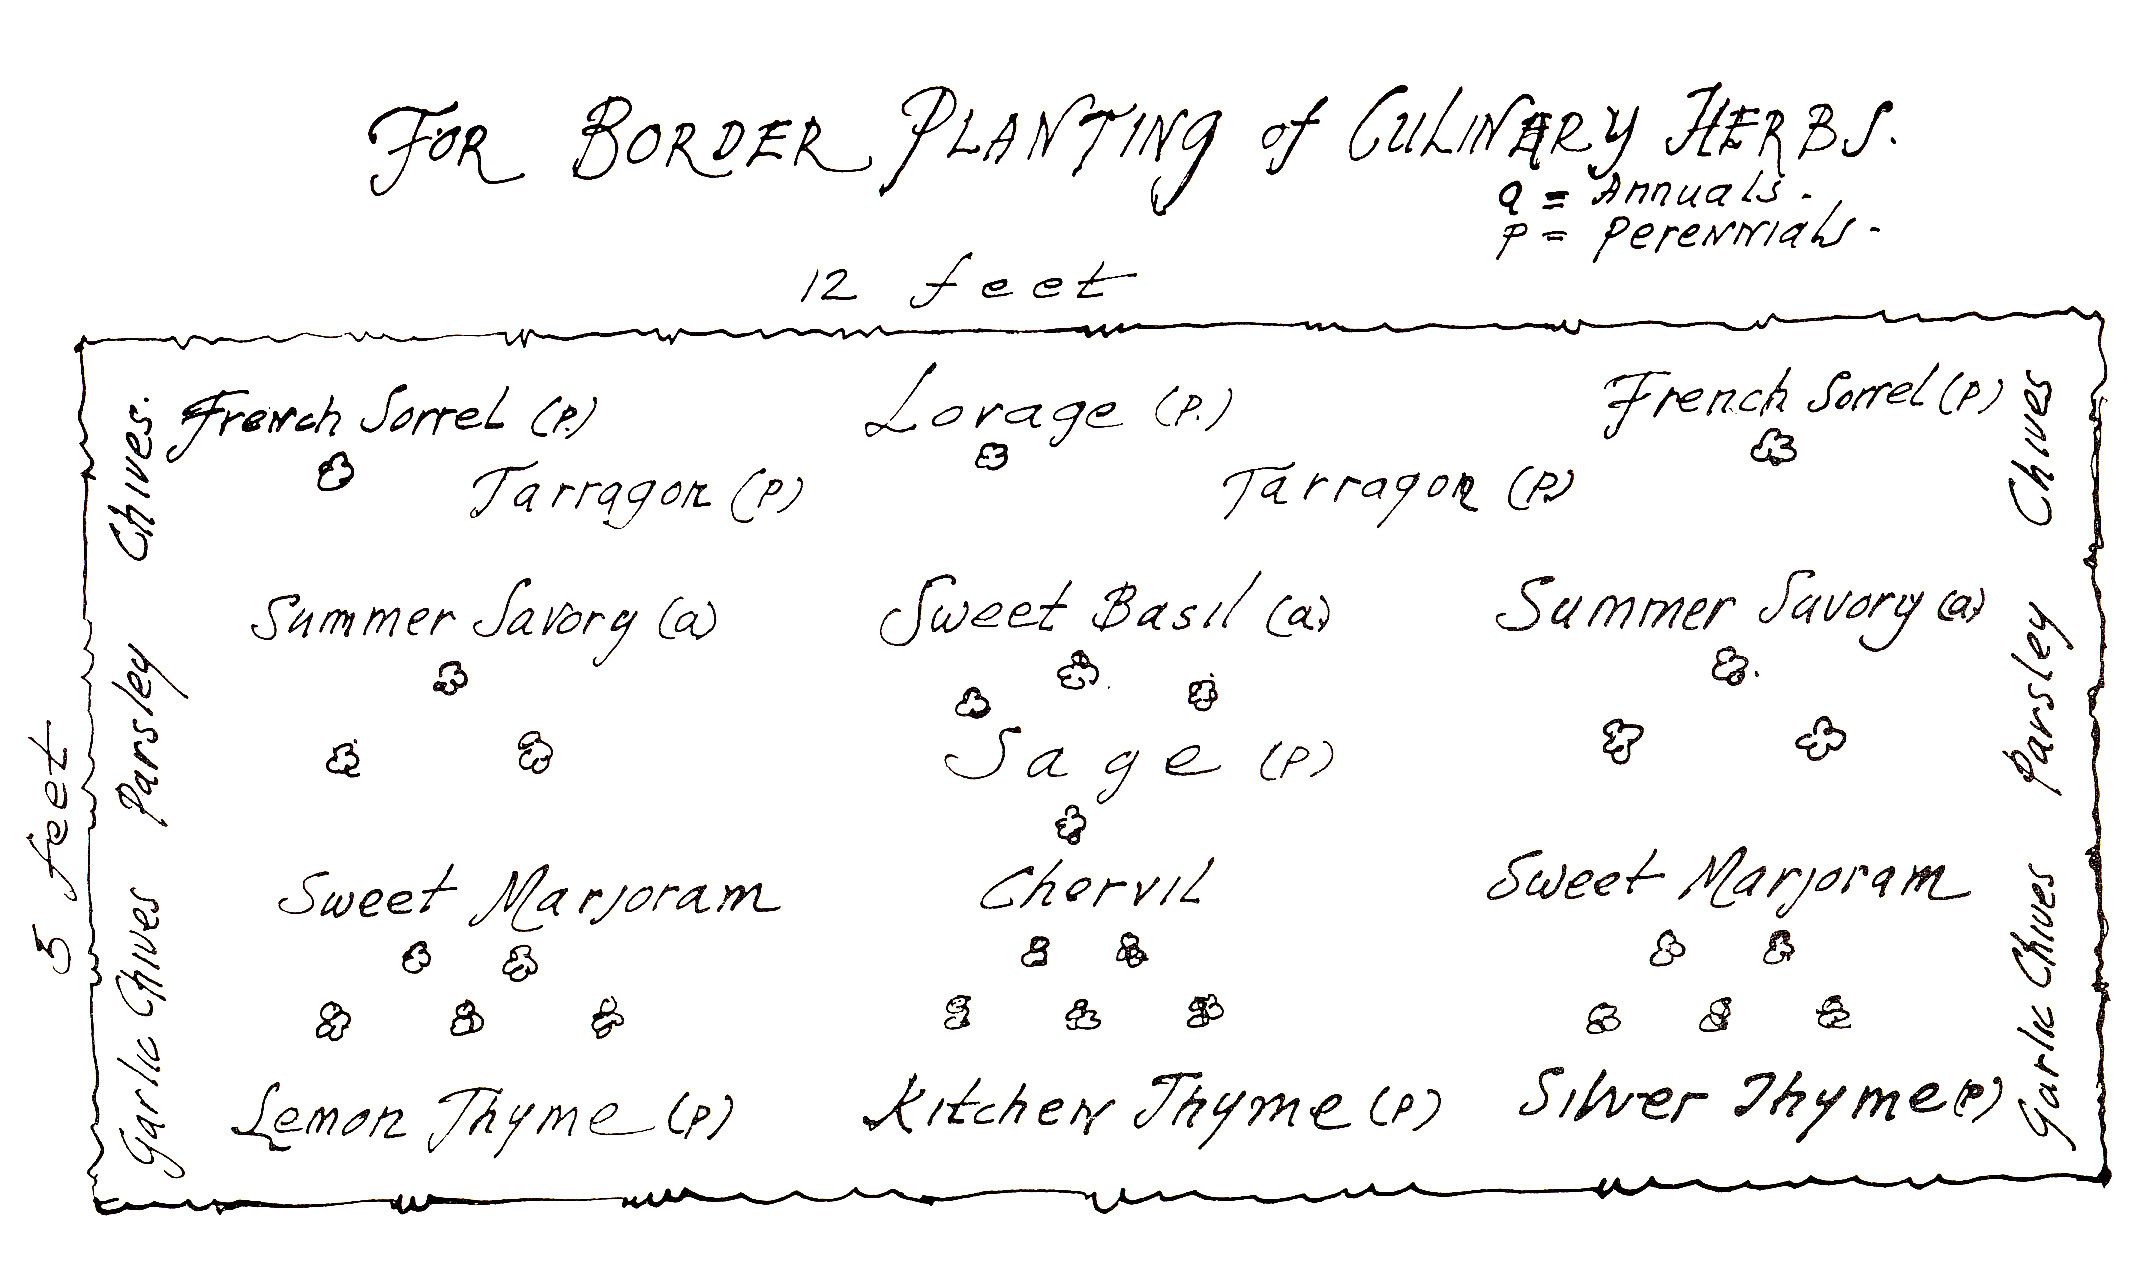 FOR BORDER PLANTING of CULINARY HERBS.
a = Annuals.
P = Perennials.
12 feet
5 feet
Chives.
Parsley
Garlic Chives
French Sorrel (P.)
Lorage (P.)
French Sorrel (P)
Tarragon (P)
Tarragon (P.)
Summer Savory (a)
Sweet Basil (a)
Summer Savory (a)
Sage (P)
Sweet Marjoram
Chervil
Sweet Marjoram
Lemon Thyme (P)
Kitchen Thyme (P)
Silver Thyme (P)
Chives
Parsley
Garlic Chives